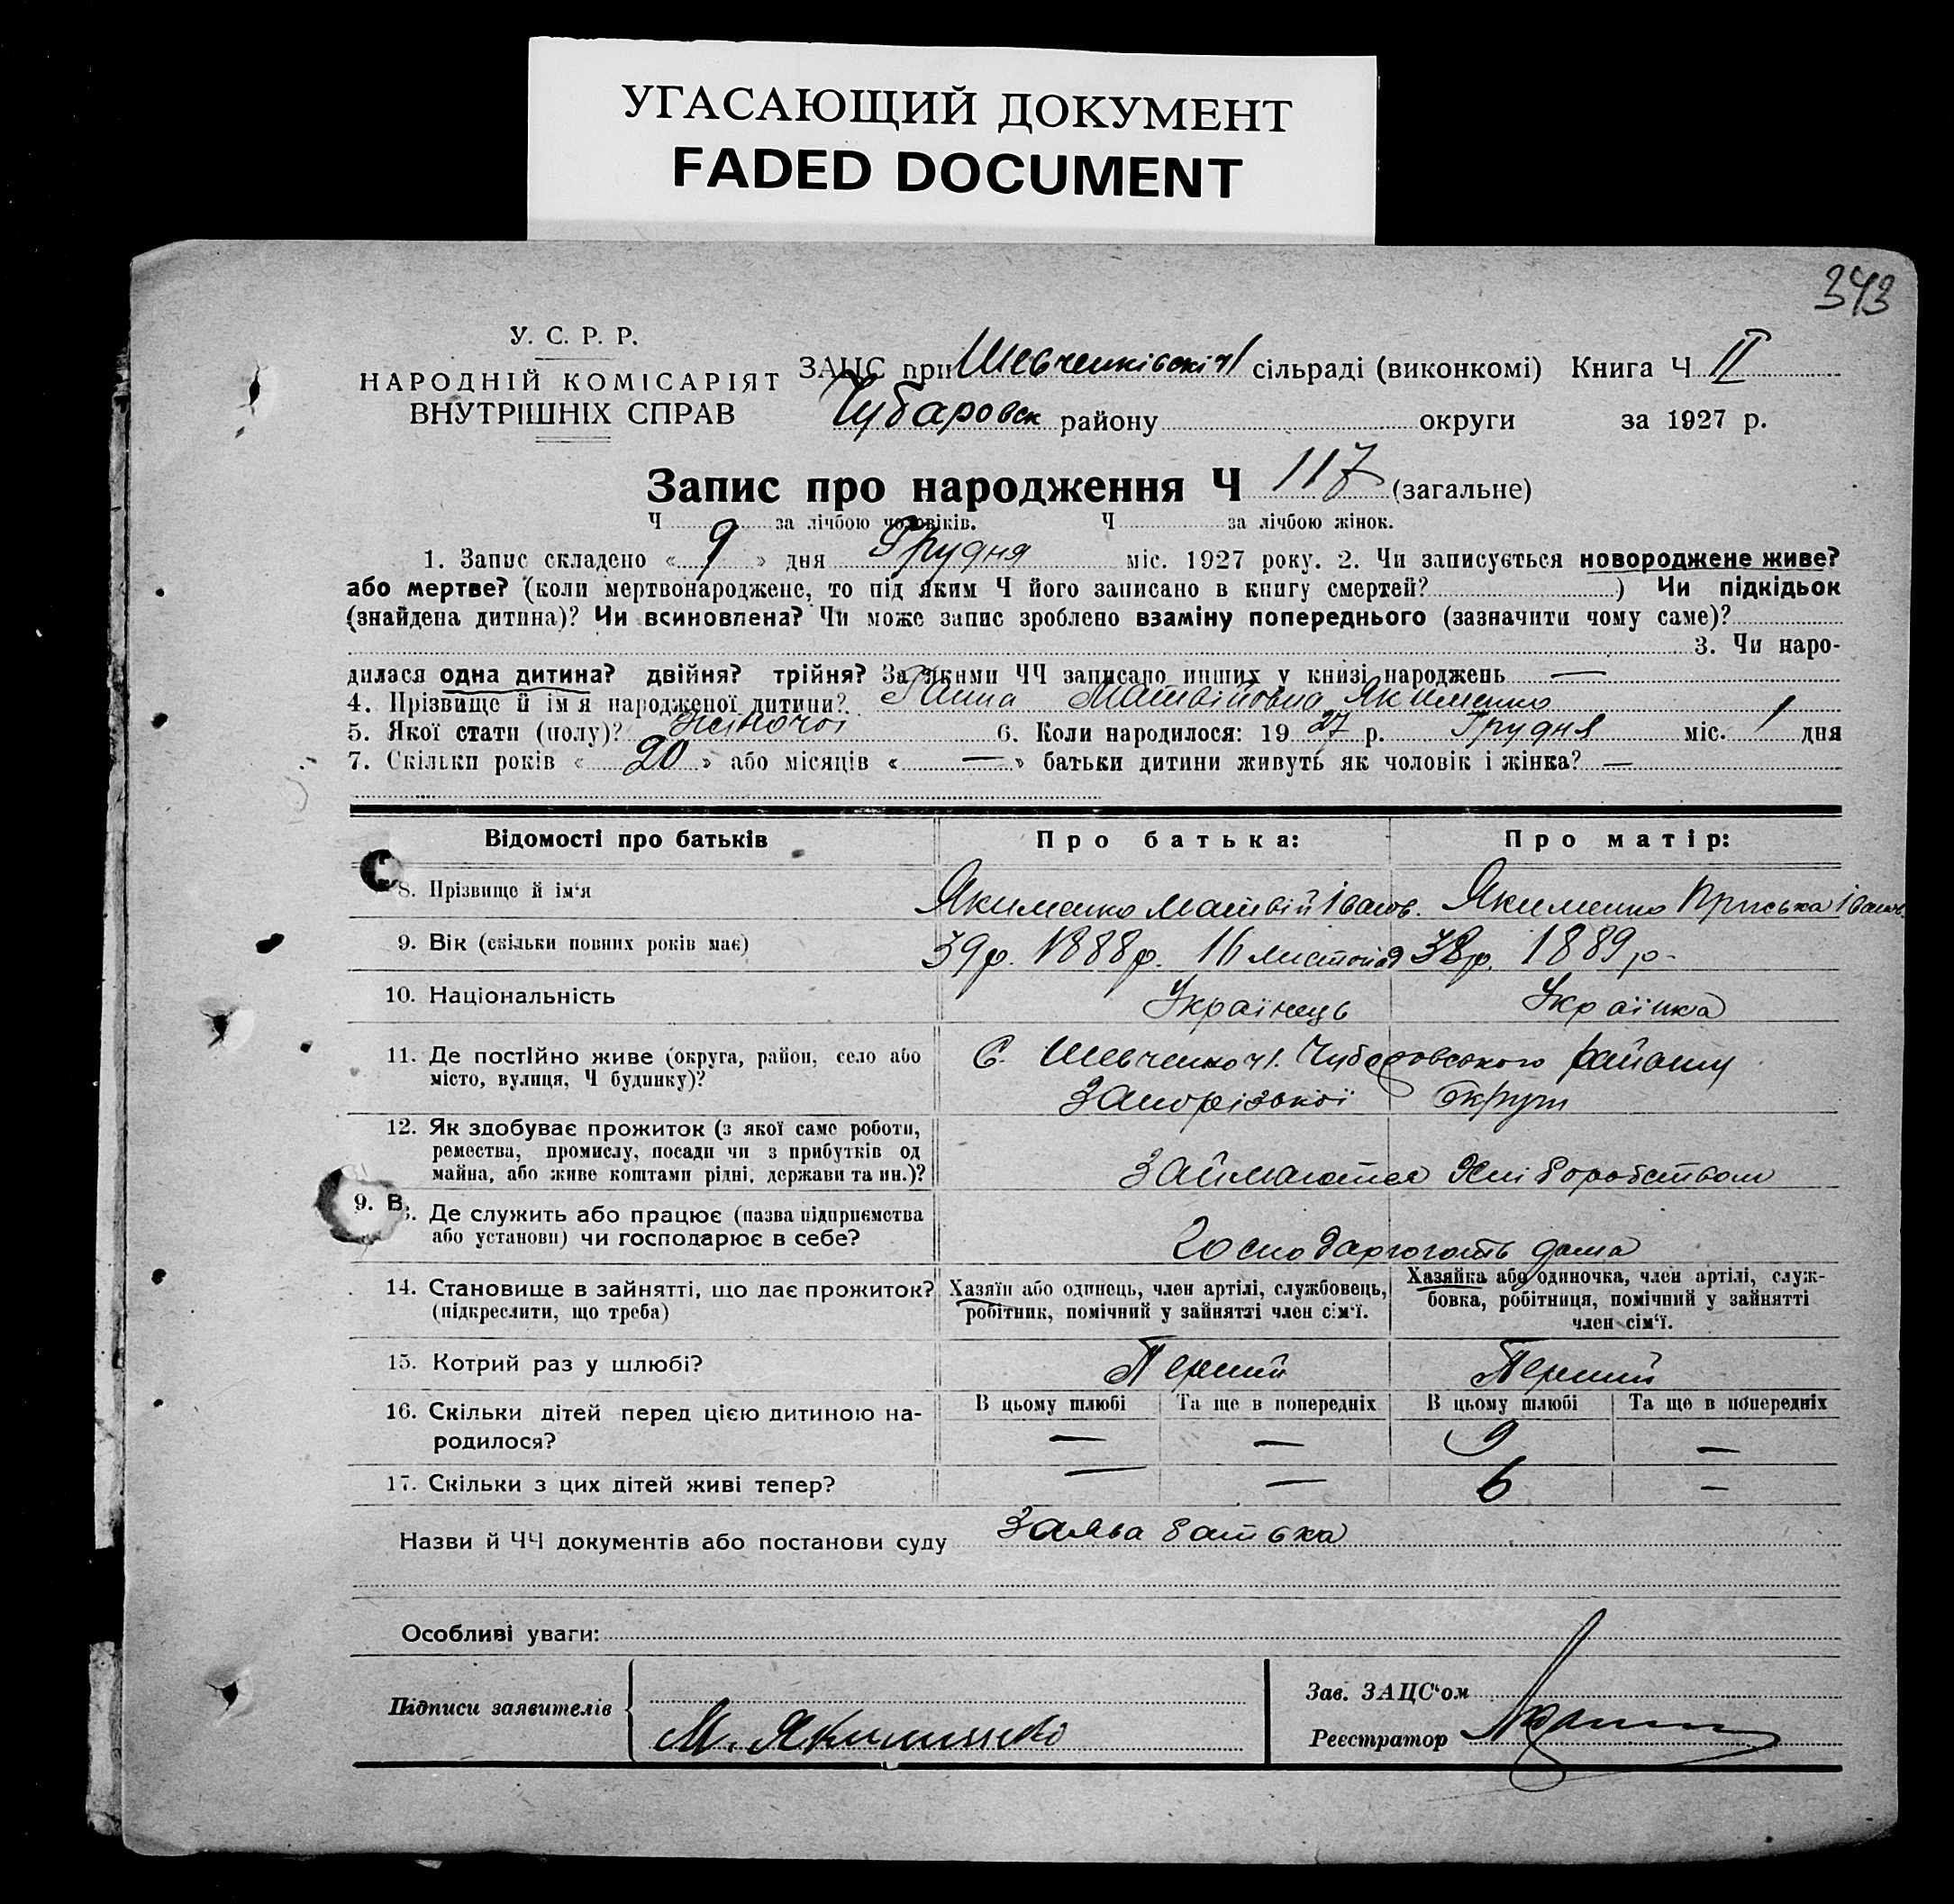 УГАСАЮЩИЙ ДОКУМЕНТ
FADED DOCUMENT
343
У. С. Р. Р.
НАРОДНІЙ КОМІСАРІЯТ
ВНУТРІШНІХ СПРАВ
ЗАЦС при Шевченківскій сільраді (виконкомі) Книга Ч II
Чубаровск району округи за 1927 р.
Запис про народження Ч 117 (загальне)
Ч за лічбою чоловіків. Ч за лічбою жінок.
1. Запис складено « 9 » дня Грудня міс. 1927 року. 2. Чи записується новороджене живе?
або мертве? (коли мертвонароджене, то під яким Ч його записано в книгу смертей? ) Чи підкідьок
(знайдена дитина)? Чи всиновлена? Чи може запис зроблено взаміну попереднього (зазначити чому саме)?
3. Чи наро-
дилася одна дитина? двійня? трійня? За якими ЧЧ записано инших у книзі народжень —
4. Прізвище й ім'я народженої дитини? Ганна Матвійовна Якименко
5. Якої стати (полу)? жіночої 6. Коли народилося: 19 27 р. Грудня міс. 1 дня
7. Скільки років « 20 » або місяців « — » батьки дитини живуть як чоловік і жінка? —
Відомості про батьків Про батька: Про матір:
8. Прізвище й ім'я Якименко Матвій Іванов. Якименко Приська Іванов.
9. Вік (скільки повних років має) 39 р. 1888 р. 16 листопад 38 р. 1889 р.
10. Національність Українець Українка
11. Де постійно живе (округа, район, село або С. Шевченко ч1. Чубаровського району
місто, вулиця, Ч будинку)? Запорізької округи
12. Як здобуває прожиток (з якої саме роботи,
ремества, промислу, посади чи з прибутків од
майна, або живе коштами рідні, держави та ин.)? Займаются хліборобством
9. В
3. Де служить або працює (назва підприємства
або установи) чи господарює в себе? Господарюють дома
14. Становище в зайнятті, що дає прожиток? Хазяїн або одинець, член артілі, службовець, Хазяйка або одиночка, член артілі, служ-
(підкреслити, що треба) робітник, помічний у зайнятті член сім'ї. бовка, робітниця, помічний у зайнятті
член сім'ї.
15. Котрий раз у шлюбі? Перший Перший
16. Скільки дітей перед цією дитиною на- В цьому шлюбі Та ще в попередніх В цьому шлюбі Та ще в попередніх
родилося? — — 9 —
17. Скільки з цих дітей живі тепер? — — 6 —
Назви й ЧЧ документів або постанови суду Заява батька
Особливі уваги:
Зав. ЗАЦС'ом
Підписи заявителів М. Якименко
Реєстратор